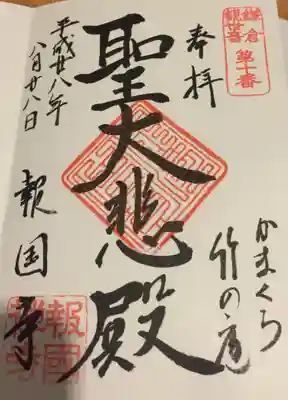 鎌倉
観世音
第十番
奉拝
かまくら
竹の庭
聖大悲殿
平成廿八年
八月廿八日
報国寺
報國